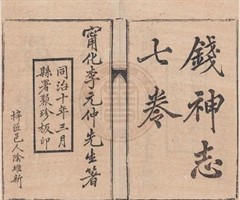 錢神志
七卷
甯化李元仲先生著
同治十年三月
縣署聚珍板印
梓匠邑人陰維新